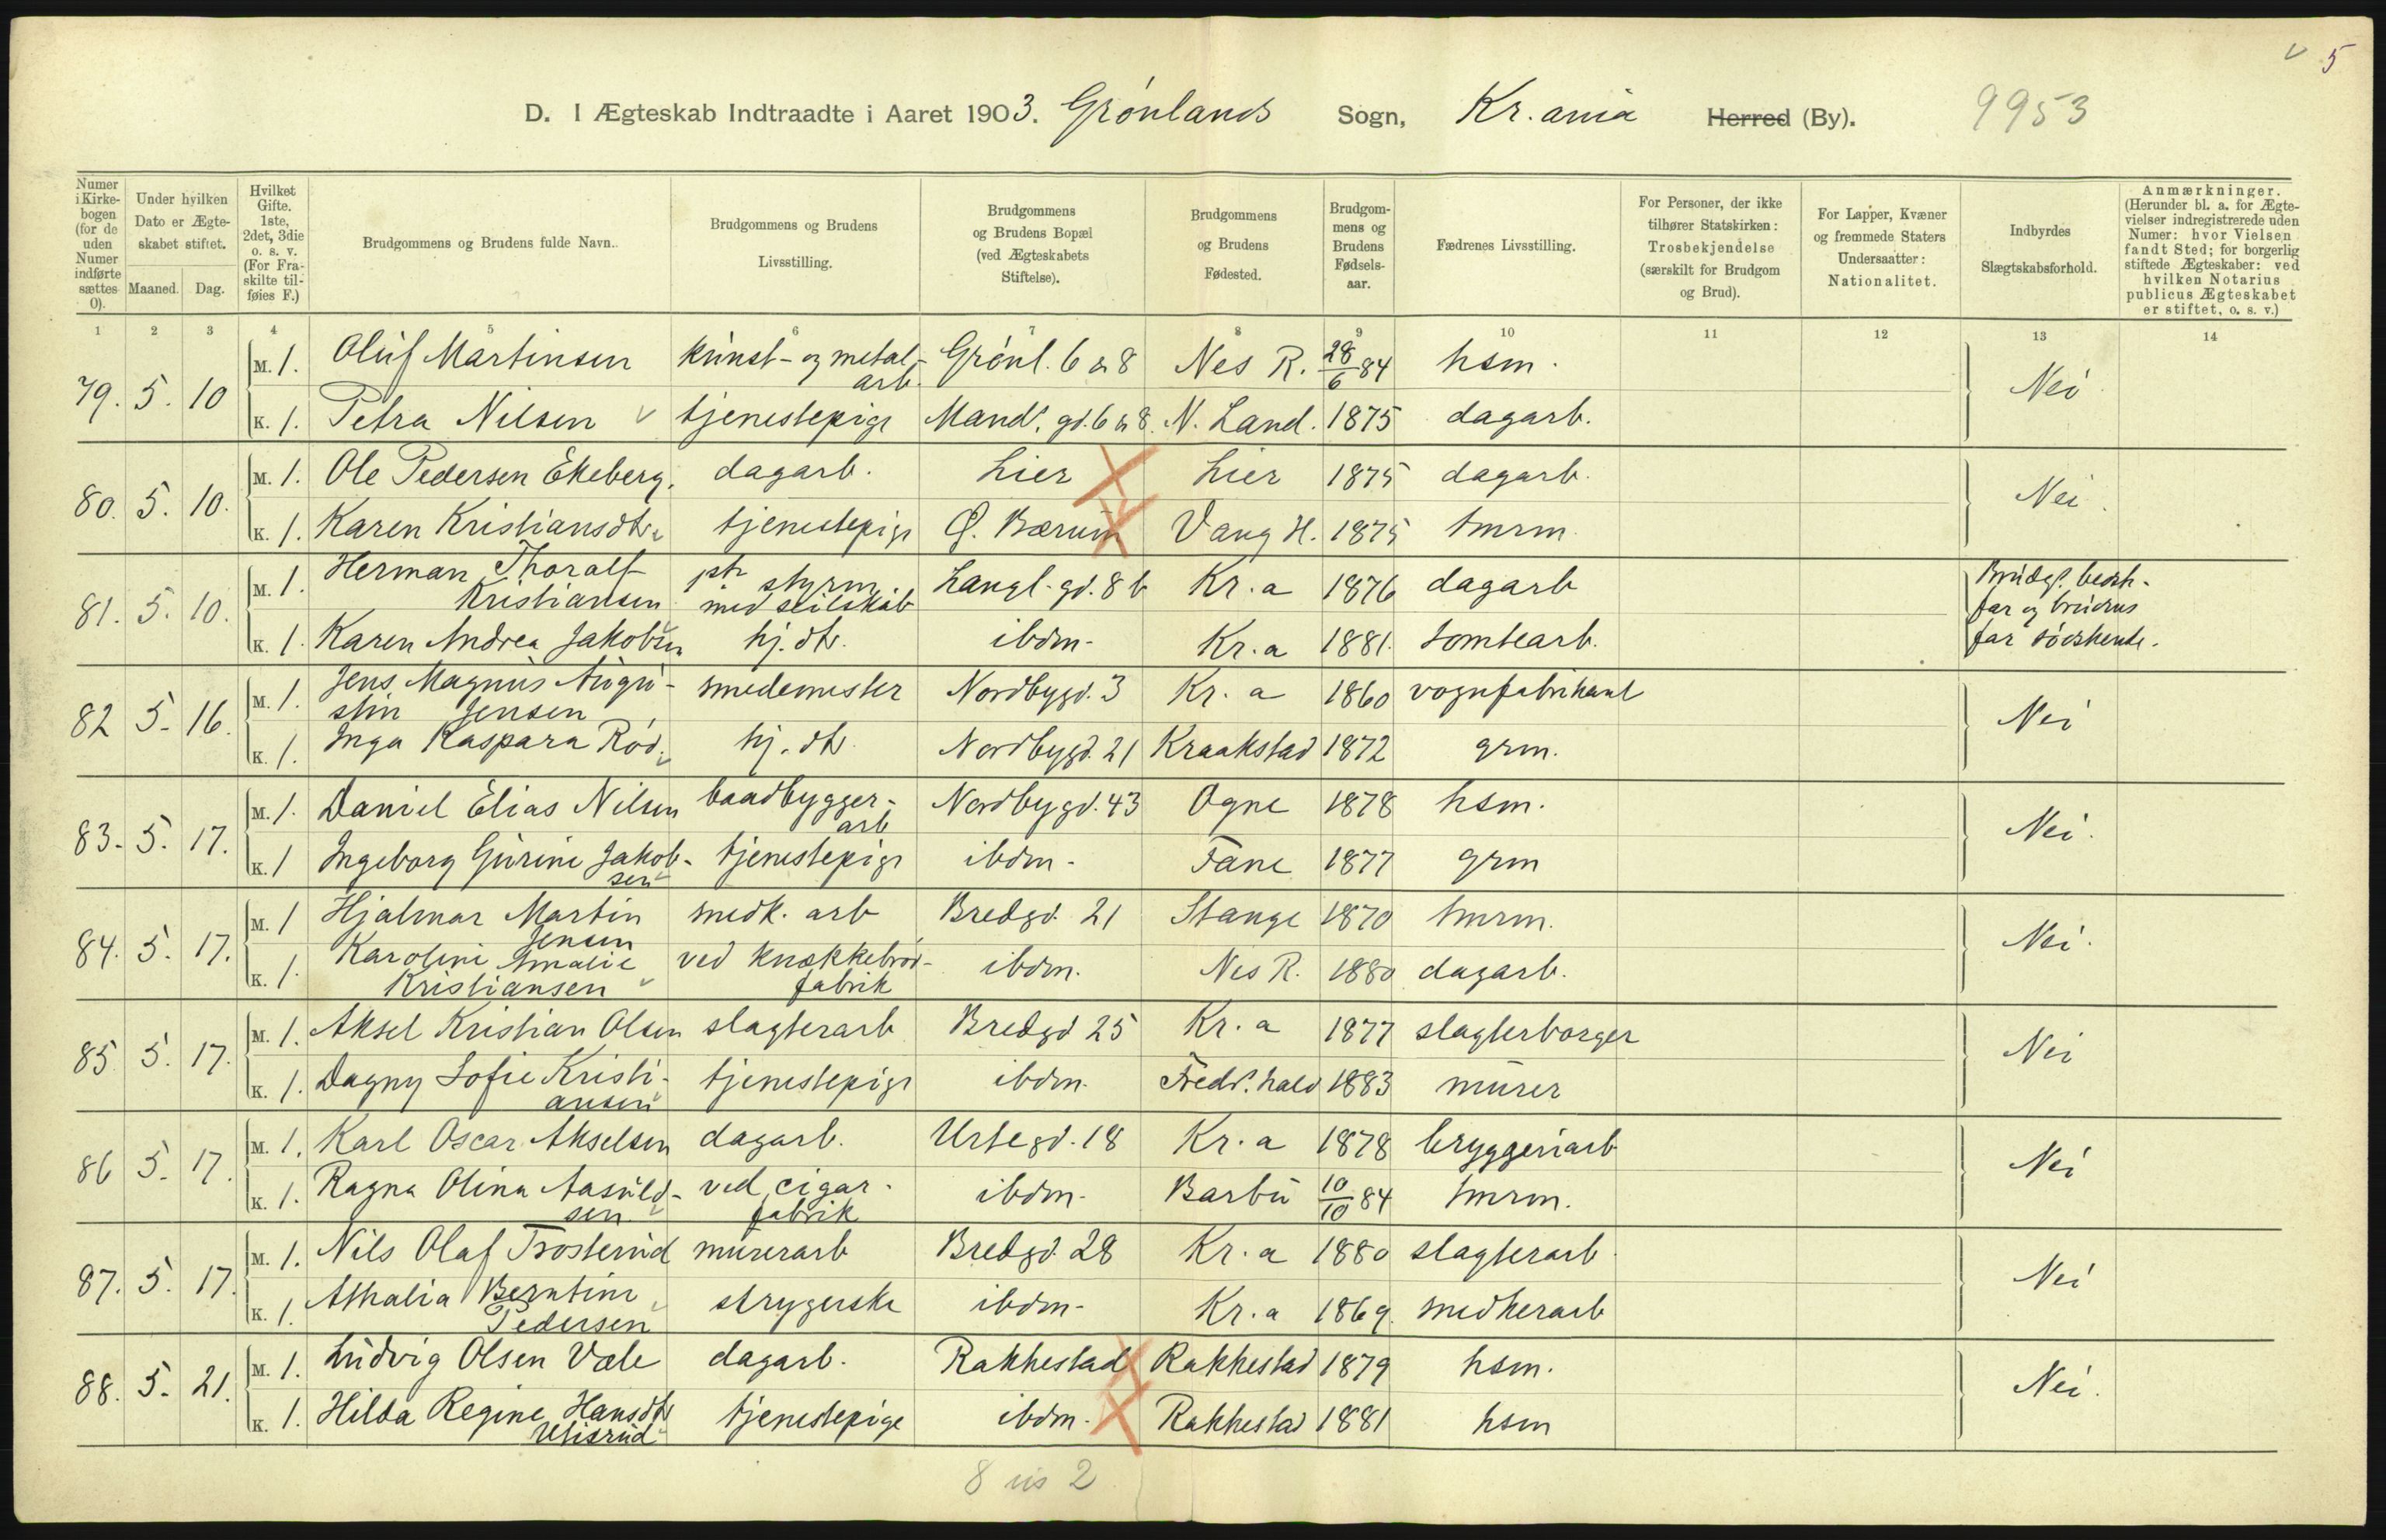 v 5
D. I Ægteskab Indtraadte i Aaret 1903. Grönlands Sogn, Kr.ania Herred (By). 9953
Numer i Kirkebogen (for de uden Numer indførte sættes 0).
Under hvilken Dato er Ægteskabet stiftet.
Maaned. Dag.
Hvilket Gifte. 1ste, 2det, 3die o. s. v. (For Fraskilte tilføies F.)
Brudgommens og Brudens fulde Navn.
Brudgommens og Brudens Livsstilling.
Brudgommens og Brudens Bopæl (ved Ægteskabets Stiftelse).
Brudgommens og Brudens Fødested.
Brudgommens og Brudens Fødselsaar.
Fædrenes Livsstilling.
For Personer, der ikke tilhører Statskirken: Trosbekjendelse (særskilt for Brudgom og Brud).
For Lapper, Kvæner og fremmede Staters Undersaatter: Nationalitet.
Indbyrdes Slægtskabsforhold.
Anmærkninger. (Herunder bl. a. for Ægtevielser indregistrerede uden Numer: hvor Vielsen fandt Sted; for borgerlig stiftede Ægteskaber: ved hvilken Notarius publicus Ægteskabet er stiftet, o. s. v.)
1 2 3 4 5 6 7 8 9 10 11 12 13 14
79. 5. 10 M. 1. Oluf Martinsen kunst- og metal-arb. Grönl. 6 & 8 Nes R. 28/6 84 hsm. Nei
K. 1. Petra Nilsen tjenestepige Mands. gd. 6 & 8. N. Land. 1875 dagarb.
80. 5. 10. M. 1. Ole Pedersen Ekeberg. dagarb. Lier Lier 1875 dagarb. Nei.
K. 1. Karen Kristiansdtr. tjenestepige Ø. Bærum Vang H. 1875 tmrm.
81. 5. 10. M. 1. Herman Thoralf Kristiansen styrm. med seilskib Langl. gd. 8 b Kr.a 1876 dagarb Brudgs. besth-
far og brudens
far södskende.
K. 1. Karen Andrea Jakobsen hj. dtr. ibdm. Kr.a 1881. tomtearb.
82 5. 16. M. 1. Jens Magnus Augustin Jensen smedemester Nordbygd. 3 Kr.a 1860 vognfabrikant Nei
K. 1. Inga Kaspara Röd. hj. dtr. Nordbygd. 21 Kraakstad 1872 grm.
83. 5. 17. M. 1. Daniel Elias Nilsen baadbygger-arb Nordbygd. 43 Ogne 1878 hsm. Nei.
K. 1 Ingeborg Gurine Jakobsen tjenestepige ibdm. Fane 1877 grm
84. 5. 17. M. 1 Hjalmar Martin Jensen snedk. arb Bredgd. 21 Stange 1870 tmrm. Nei.
K. 1. Karoline Amalie Kristiansen ved knækkebröd-fabrik ibdm. Nes R. 1880 dagarb.
85 5. 17. M. 1. Aksel Kristian Olsen slagterarb Bredgd 25 Kr.a 1877 slagterborger Nei
K. 1. Dagny Sofie Kristiansen tjenestepige ibdm. Fredr.hald 1883 murer
86 5. 17. M. 1. Karl Oscar Akselsen dagarb. Urtegd. 18 Kr.a 1878 bryggeriarb Nei
K. 1. Ragna Olina Aasuldsen ved cigar-fabrik ibdm. Barbu 10/10 84 tmrm.
87. 5. 17. M. 1. Nils Olaf Trosterud murerarb Bredgd. 28 Kr.a 1880 slagterarb. Nei
K. 1. Athalia Berntine Pedersen strygerske ibdm. Kr.a 1869. snedkerarb
88. 5. 21. M. 1. Ludvig Olsen Vale dagarb. Rakkestad Rakkestad 1879 hsm. Nei.
K. 1. Hilda Regine Hansdtr tjenestepige ibdm. Rakkestad 1881 hsm
8 is 2